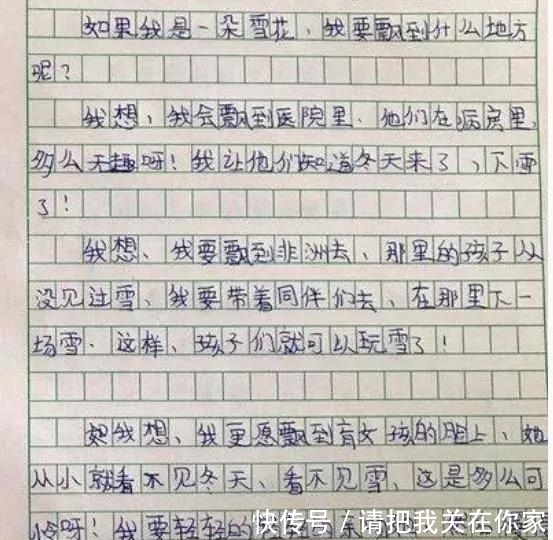 如果我是一朵雪花、我要飘到什么地方
呢？
我想、我会飘到医院里、他们在病房里，
多么无趣呀！我让他们知道冬天来了、下雪
了！
我想、我要飘到非洲去、那里的孩子从
没见过雪、我要带着同伴们去、在那里下一
场雪、这样、孩子们就可以玩雪了！
我想、我更愿飘到盲女孩的脸上、她
从小就看不见冬天、看不见雪、这是多么可
怜呀！我要轻轻的
快传号/请把我关在你家